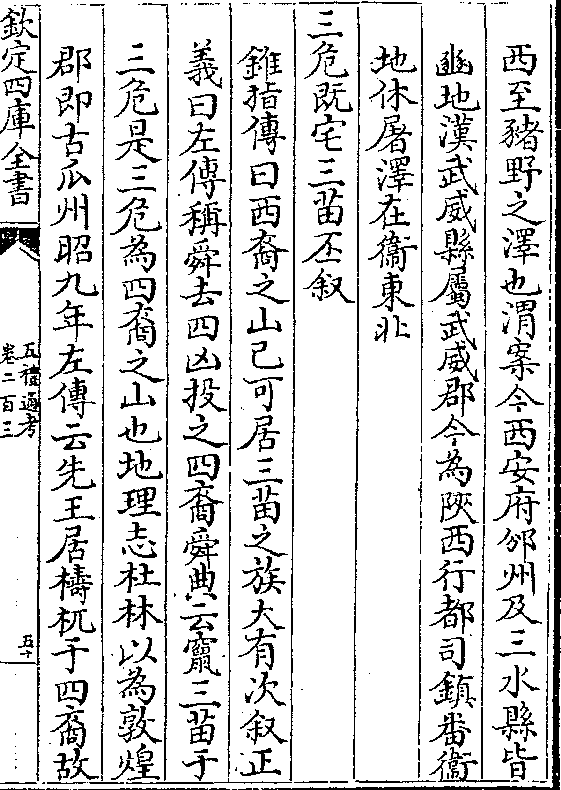 西至豬野之澤也渭案今西安府邠州及三水縣皆
豳地漢武威縣屬武威郡今為陜西行都司鎮番衞
地休屠澤在衞東北
三危既宅三苗丕叙
錐指傳曰西裔之山已可居三苗之族大有次叙正
義曰左傳稱舜去四凶投之四裔舜典云竄三苗于
三危是三危為四裔之山也地理志杜林以為敦煌
郡即古瓜州昭九年左傳云先王居檮杌于四裔故
欽定四庫全書
五禮通考
卷二百三
五十